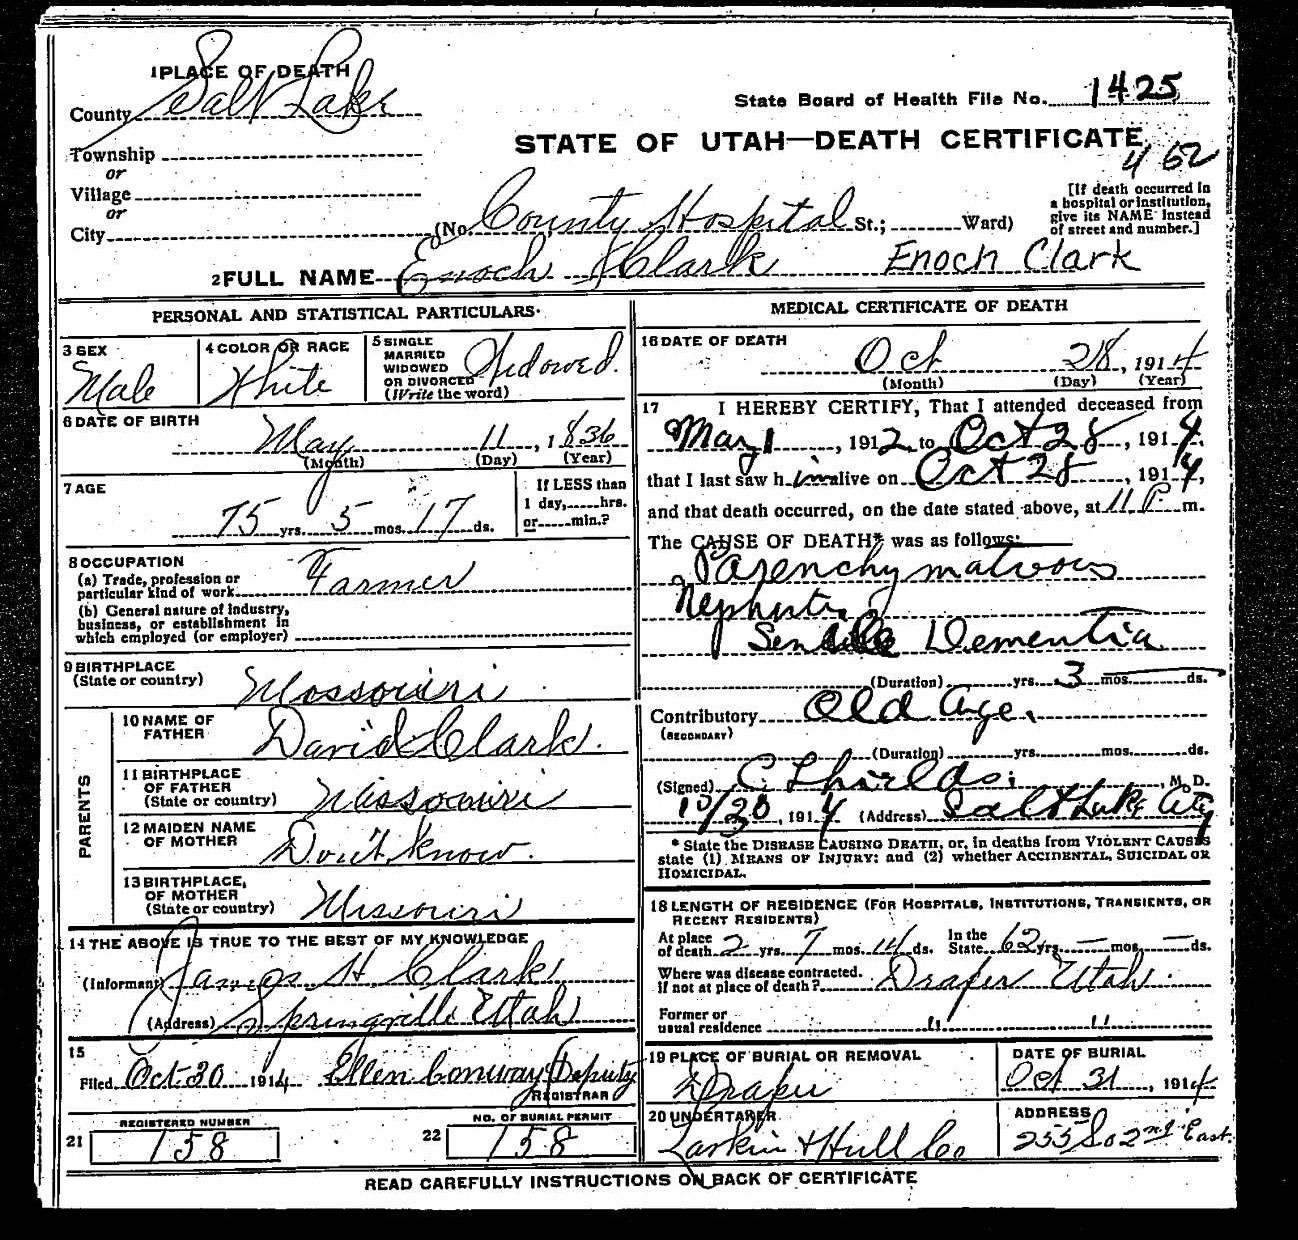 1 PLACE OF DEATH
County Salt Lake
State Board of Health File No. 1425
STATE OF UTAH—DEATH CERTIFICATE
Township
or
Village
or
City
462
(No. County Hospital St.; Ward)
[If death occurred in
a hospital or institution,
give its NAME instead
of street and number.]
2 FULL NAME Enoch Clark Enoch Clark
PERSONAL AND STATISTICAL PARTICULARS
3 SEX
Male
4 COLOR OR RACE
White
5 SINGLE
MARRIED
WIDOWED
OR DIVORCED
(Write the word)
Widowed.
6 DATE OF BIRTH
May 11, 1836
(Month) (Day) (Year)
7 AGE
75 yrs. 5 mos. 17 ds.
If LESS than
1 day, hrs.
or min.?
8 OCCUPATION
(a) Trade, profession or
particular kind of work Farmer
(b) General nature of industry,
business, or establishment in
which employed (or employer)
9 BIRTHPLACE
(State or country)
Mossouiri
PARENTS
10 NAME OF
FATHER
David Clark.
11 BIRTHPLACE
OF FATHER
(State or country)
Missouiri
12 MAIDEN NAME
OF MOTHER
Don't know.
13 BIRTHPLACE,
OF MOTHER
(State or country)
Missouiri
14 THE ABOVE IS TRUE TO THE BEST OF MY KNOWLEDGE
(Informant) James H. Clark
(Address) Springville Utah
15
Filed Oct 30 1914 Ellen Conway Deputy
REGISTRAR
21 REGISTERED NUMBER
158
22 NO. OF BURIAL PERMIT
158
MEDICAL CERTIFICATE OF DEATH
16 DATE OF DEATH
Oct 28, 1914
(Month) (Day) (Year)
17 I HEREBY CERTIFY, That I attended deceased from
Mar 1, 1912 to Oct 28, 1914,
that I last saw h im alive on Oct 28, 1914,
and that death occurred, on the date stated above, at 11 P m.
The CAUSE OF DEATH* was as follows:
Parenchymatvous
Nephritis
Senile Dementia
(Duration) yrs. 3 mos. ds.
Contributory Old Age.
(SECONDARY)
(Duration) yrs. mos. ds.
(Signed) C. Shields, M. D.
10/30, 1914 (Address) Salt Lake City
* State the DISEASE CAUSING DEATH, or, in deaths from VIOLENT CAUSES
state (1) MEANS OF INJURY; and (2) whether ACCIDENTAL, SUICIDAL OR
HOMICIDAL.
18 LENGTH OF RESIDENCE (FOR HOSPITALS, INSTITUTIONS, TRANSIENTS, OR
RECENT RESIDENTS)
At place
of death 2 yrs. 7 mos. 14 ds.
In the
State 62 yrs. — mos. — ds.
Where was disease contracted.
if not at place of death? Draper Utah.
Former or
usual residence " "
19 PLACE OF BURIAL OR REMOVAL
Draper
DATE OF BURIAL
Oct 31, 1914
20 UNDERTAKER
Larkin & Hull Co
ADDRESS
255 So 2nd East.
READ CAREFULLY INSTRUCTIONS ON BACK OF CERTIFICATE